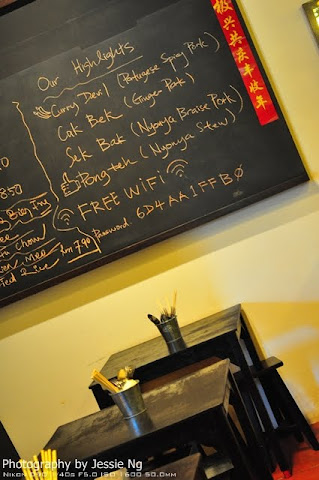 Our Highlights
Curry Devil (Portugese Spicy Pork)
Cak Bek (Ginger Pork)
Sek Bak (Nyonya Braise Pork)
Pongteh (Nyonya Stew)
FREE WIFI
Password 6D4AA1FFBØ
850
Mee
Fried Rice Rm 7.90
Photography by Jessie Ng